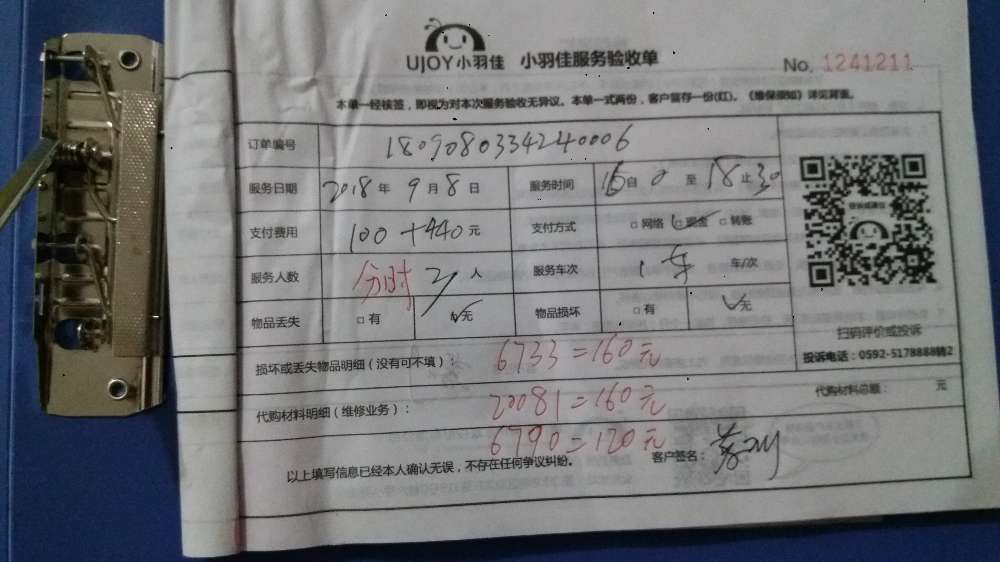 UJOY小羽佳 小羽佳服务验收单
No. 1241211
本单一经核签，即视为对本次服务验收无异议。本单一式两份，客户留存一份(红)。《维保须知》详见背面。
订单编号 1809080334240006
服务日期 2018 年 9 月 8 日 服务时间 16 自 0 至 18 止 30
支付费用 100+440 元 支付方式 □网络 □现金 □转账
服务人数 分时 人 服务车次 1 车 车/次
物品丢失 □有 □无 物品损坏 □有 无
扫码评价或投诉
损坏或丢失物品明细（没有可不填）： 6733=160元
投诉电话：0592-5178888转2
代购材料明细（维修业务）： 20081=160元 代购材料总额： 元
6790=120元
以上填写信息已经本人确认无误，不存在任何争议纠纷。 客户签名：